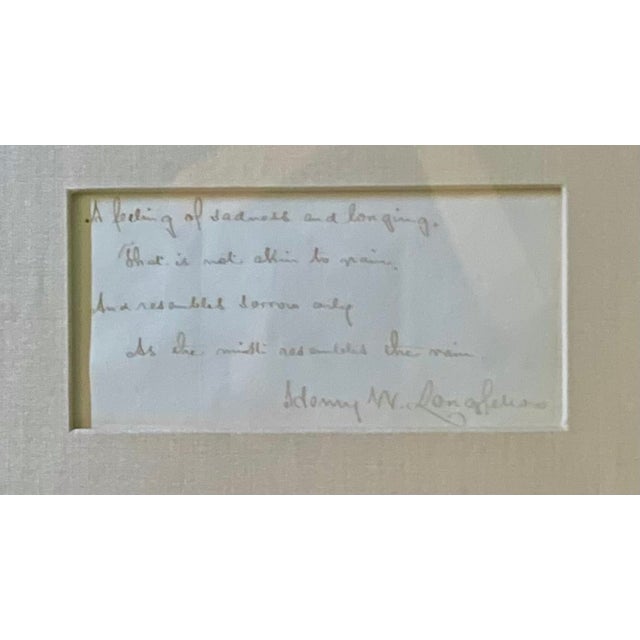 A feeling of sadness and longing,
That is not akin to pain,
And resembles sorrow only
As the mist resembles the rain
Henry W. Longfellow